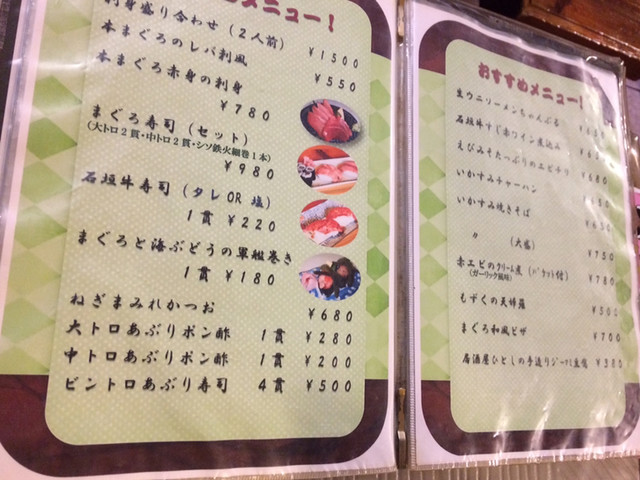 メニュー！
刺身盛り合わせ（2人前） ￥1500
本まぐろのレバ刺風 ￥550
本まぐろ赤身の刺身
￥780
まぐろ寿司（セット）
（大トロ2貫・中トロ2貫・シソ鉄火細巻1本）
￥980
石垣牛寿司（タレOR塩）
1貫 ￥220
まぐろと海ぶどうの軍艦巻き
1貫 ￥180
ねぎまみれかつお ￥680
大トロあぶりポン酢 1貫 ￥280
中トロあぶりポン酢 1貫 ￥200
ビントロあぶり寿司 4貫 ￥500
おすすめメニュー！
生ウニソーメンちゃんぷる
石垣牛すじ赤ワイン煮込み
えびみそたっぷりのエビチリ ￥680
いかすみチャーハン
いかすみ焼きそば
〃 （大盛） ￥750
赤エビのクリーム煮（バケット付） ￥780
（ガーリック風味）
もずくの天婦羅 ￥500
まぐろ和風ピザ ￥700
居酒屋ひとしの手造りジーマミ豆腐 ￥380